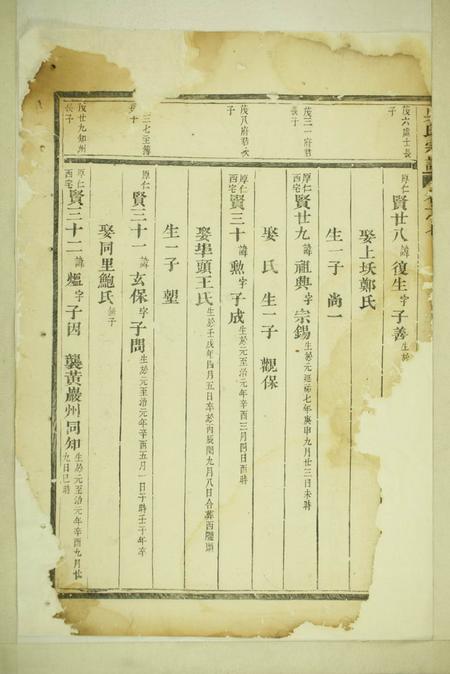 茂六處士長子
厚仁 賢廿八 諱 復生 字 子善 生於
娶上坎鄭氏
生一子 尚一
茂三一府君長子
厚仁西宅 賢廿九 諱 祖興 字 宗錫 生於元延祐七年庚申九月廿三日未時
娶 氏 生一子 觀保
茂八府君次子
厚仁西宅 賢三十 諱 勲 字 子成 生於元至治元年辛酉三月 四日酉時
娶埠頭王氏 生於壬戌年四月五日卒於丙辰閏九月八日合葬西隴頭
生一子 塑
三七主簿
厚仁 賢三十一 諱 玄保 字 子問 生於元至治元年辛酉五月一日子時壬子年卒
娶同里鮑氏 無子
茂廿九知州長子
厚仁西宅 賢三十二 諱 爐 字 子因 襲黃巖州同知 生於元至治元年辛酉九月廿九日巳時